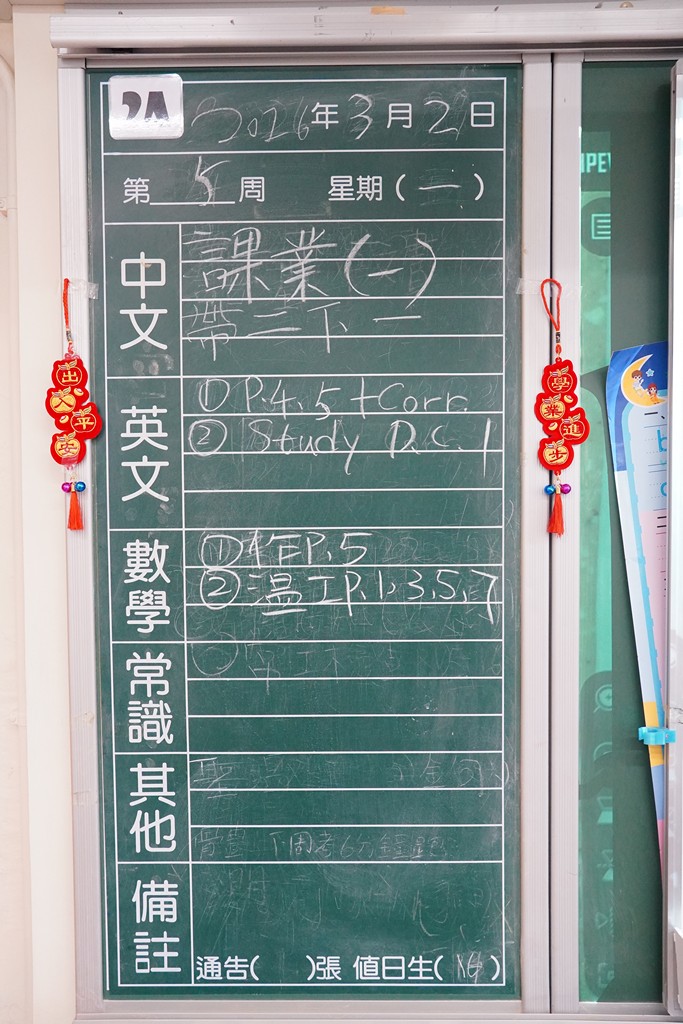 2A
2026年3月2日
第5周 星期(一)
中文
課業(一)
帶二下一
英文
① P.4.5 +Corr.
② Study D.C.1
數學
① 作P.5
② 溫工P.1.3.5.7
常識
其他
下周考6
備註
通告( )張 值日生(16)
出入平安
學業進步